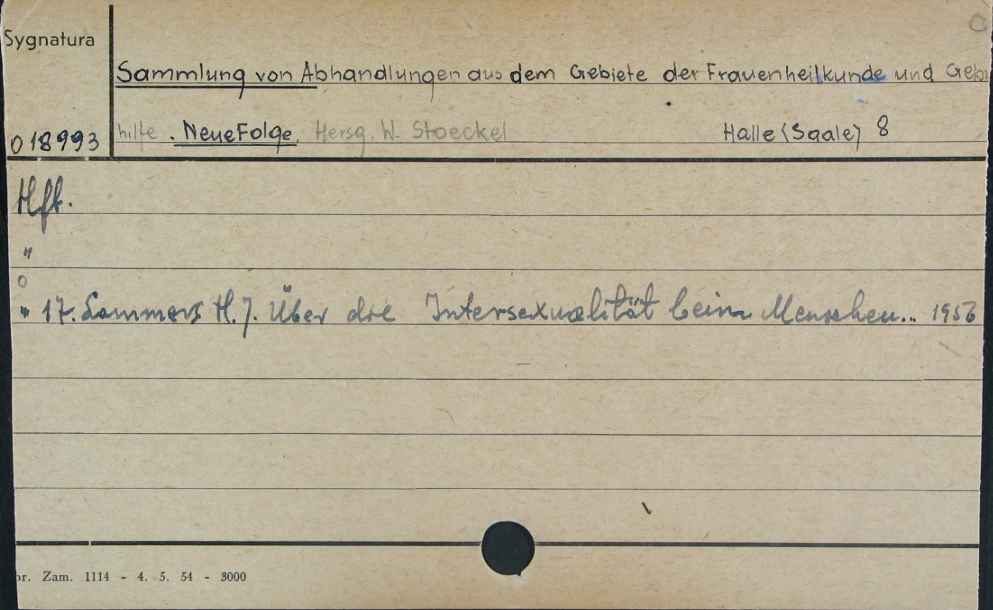 Sygnatura
Sammlung von Abhandlungen aus dem Gebiete der Frauenheilkunde und Geb
018993 hilfe. Neue Folge. Hersg. W. Stoeckel Halle (Saale) 8
Hft.
"
o
" 17. Lammers H. J. Über die Intersexualität beim Menschen.. 1956
or. Zam. 1114 - 4. 5. 54 - 3000